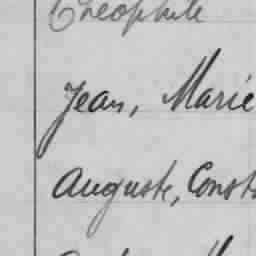 Théophile
Jean, Marie
Auguste, Const